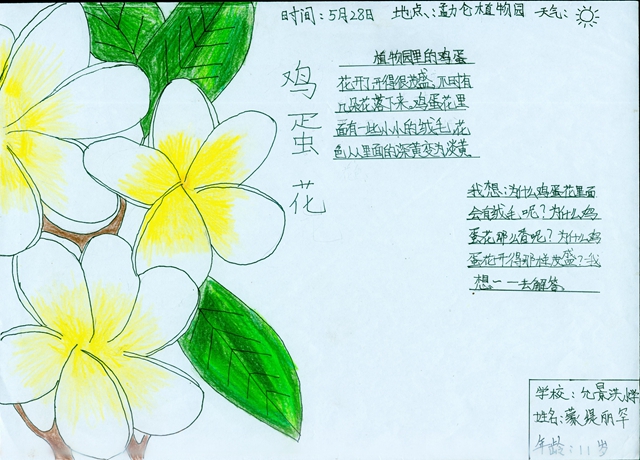 时间：5月28日 地点：勐仑植物园 天气：
鸡
蛋
花
植物园里的鸡蛋
花开了开得很茂盛，不时有
几朵花落下来。鸡蛋花里
面有一些小小的绒毛，花
色从里面的深黄变为淡黄。
我想：为什么鸡蛋花里面
会有绒毛呢？为什么鸡
蛋花那么香呢？为什么鸡
蛋花开得那样茂盛？我
想一一去解答。
学校：允景洪小学
姓名：丽罕
年龄：11岁